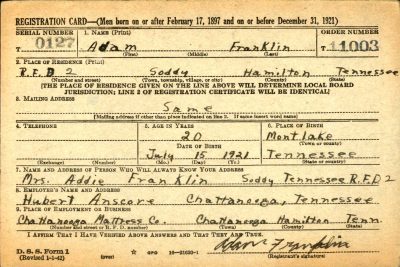 REGISTRATION CARD—(Men born on or after February 17, 1897 and on or before December 31, 1921)
SERIAL NUMBER 1. NAME (Print) ORDER NUMBER
T 0127 Adam Franklin T 11003
(First) (Middle) (Last)
2. PLACE OF RESIDENCE (Print)
R.F.D 2 Soddy Hamilton Tennessee
(Number and street) (Town, township, village, or city) (County) (State)
[THE PLACE OF RESIDENCE GIVEN ON THE LINE ABOVE WILL DETERMINE LOCAL BOARD
JURISDICTION; LINE 2 OF REGISTRATION CERTIFICATE WILL BE IDENTICAL]
3. MAILING ADDRESS
Same
[Mailing address if other than place indicated on line 2. If same insert word same]
4. TELEPHONE 5. AGE IN YEARS 6. PLACE OF BIRTH
20 Montlake
DATE OF BIRTH (Town or county)
July 15 1921 Tennessee
(Exchange) (Number) (Mo.) (Day) (Yr.) (State or country)
7. NAME AND ADDRESS OF PERSON WHO WILL ALWAYS KNOW YOUR ADDRESS
Mrs. Addie Franklin Soddy Tennessee R.F.D 2
8. EMPLOYER'S NAME AND ADDRESS
Hubert Anscore Chattanooga, Tennessee
9. PLACE OF EMPLOYMENT OR BUSINESS
Chattanooga Mattress Co. Chattanooga Hamilton Tenn.
(Number and street or R. F. D. number) (Town) (County) (State)
I AFFIRM THAT I HAVE VERIFIED ABOVE ANSWERS AND THAT THEY ARE TRUE.
D. S. S. Form 1 Adam Franklin
(Revised 1-1-42) (over) GPO 16—21630-1 (Registrant's signature)